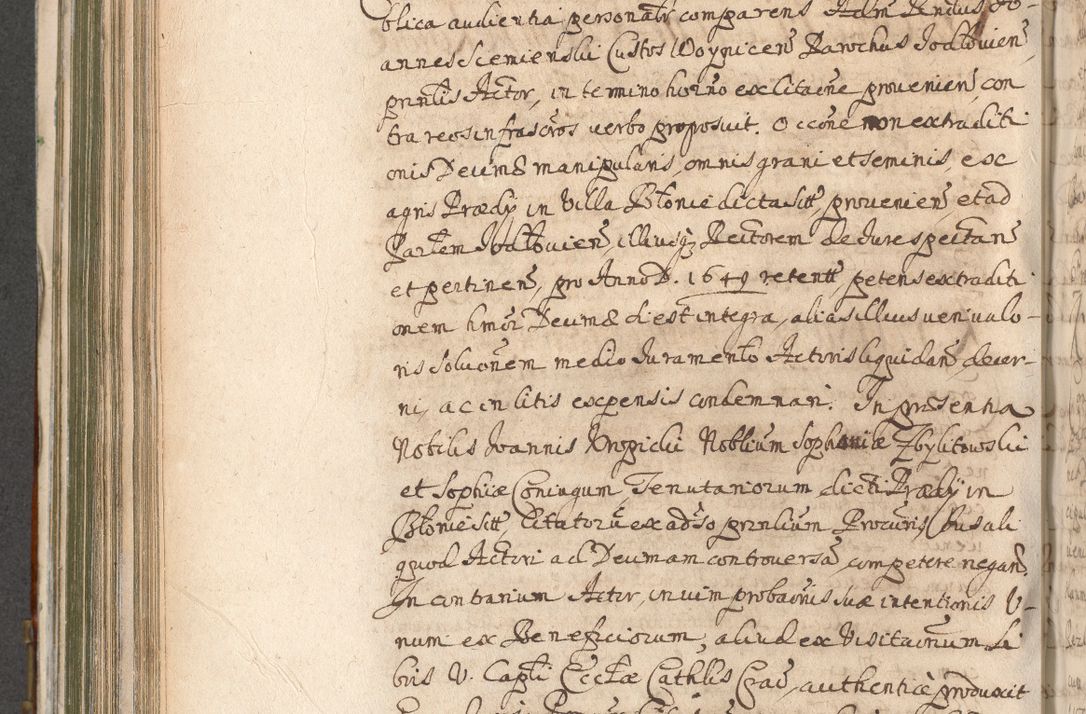 blica audientia personalr comparens Adm Rndus Jo-
annes Sciemienski Custos Woynicen Parochus Jodłovien
prntis Actor, in termino horno ex citaone provenien, con
tra reos infrascros verbo proposuit. Occone non extraditi
onis Decimæ manipularis, omnis grani et seminis, ex
agris Prædij in Villa Błonie dicta sitt, provenien, et ad
Parlem Jodłovien, illiusq Rectorem de Jure spectan
et pertinen, pro Anno D. 1649 retentt, petens extraditi
onem hmoi Decimæ si est integra, alias illius veri valo-
ris solucnem medio Juramento Actoris liquidan, decer-
ni, ac in litis expensis condemnari. In præsentia
Nobilis Joannis Kropicki Noblium Zbylitowski
et Sophiæ Coniugum, Tenutariorum dicti Prædij in
Błonie sitt, Citatoru ex adso prntium Procuris, Jus ali
quod Actori ad Decimam controversa competere negan.
In contrarium Actor, in vim probaonis suæ intentionis V-
num ex Beneficiorum, aliud ex Visitaonum Li
bris V. Capli Ecclæ Cathlis Crac, authentice produxit